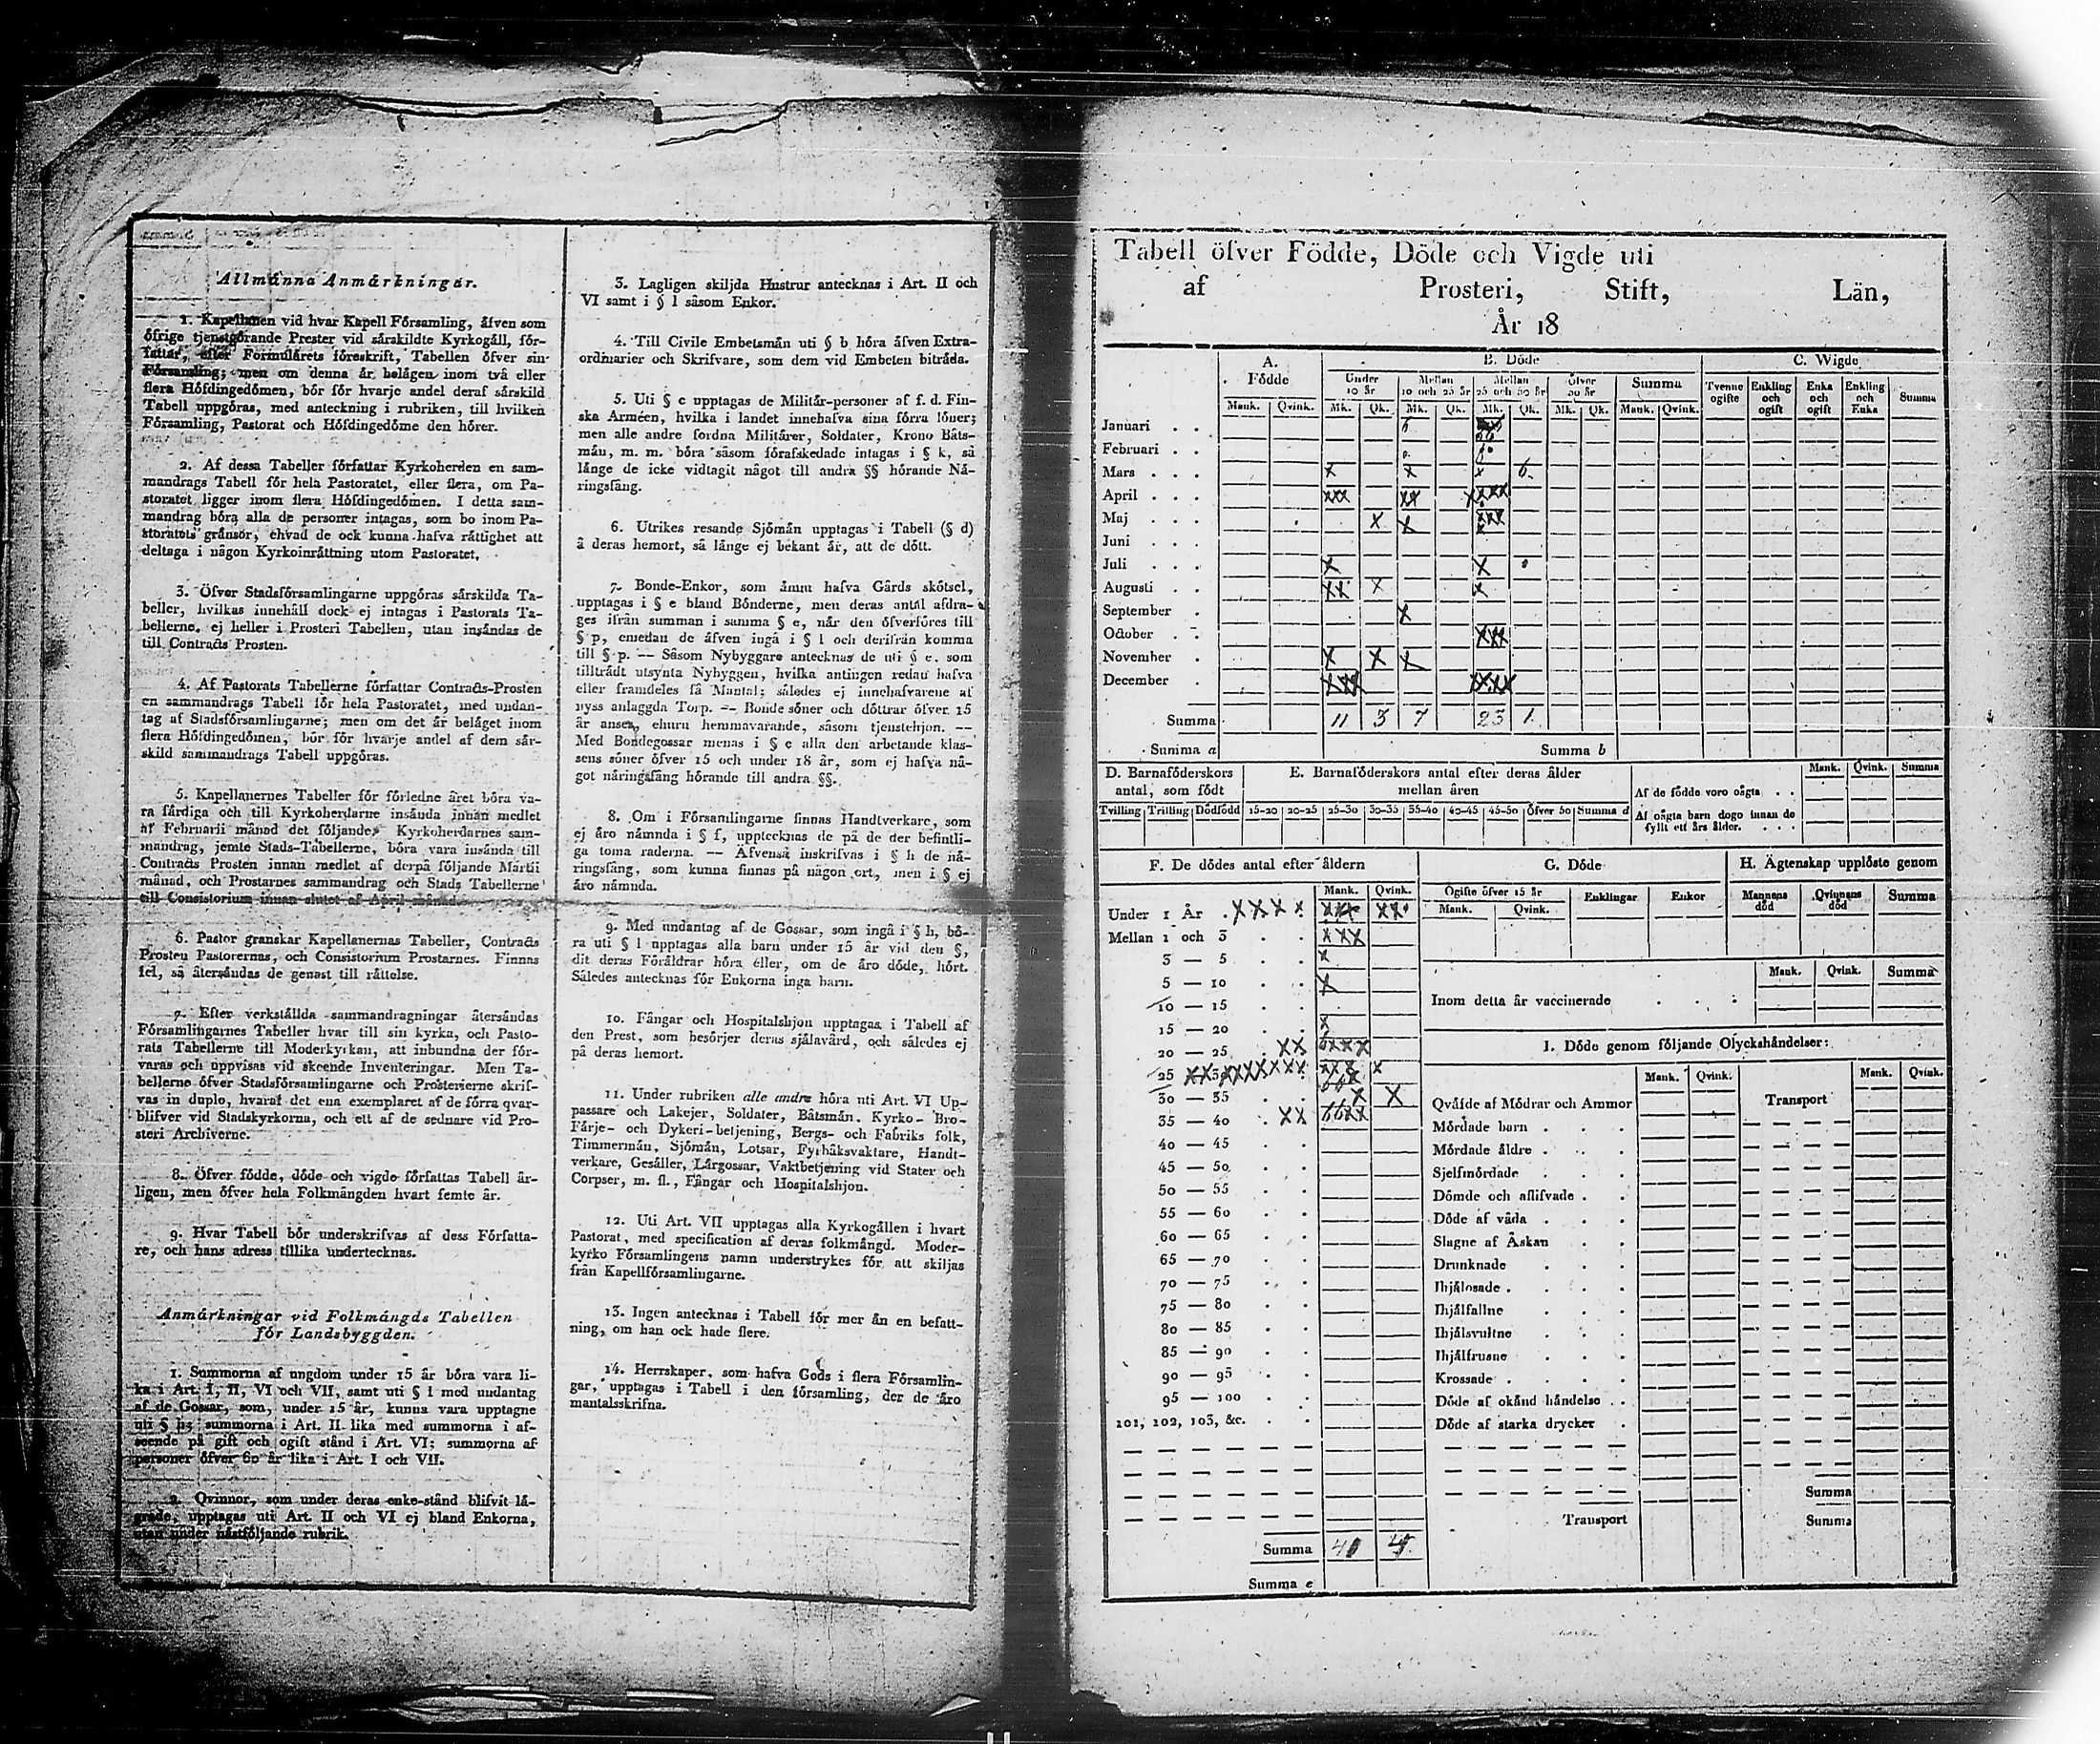 Allmånna Anmårkningar.
1. Kapellanen vid hvar Kapell Fórsamling, åfven som
ófrige tjenstgórande Prester vid sårskildte Kyrkogåll, fór-
fattar, efter Formulårets fóreskrift, Tabellen ófver sin
Fórsamling; men om denna år belågen inom två eller
flera Hófdingedómen, bór fór hvarje andel deraf sårskild
Tabell uppgóras, med anteckning i rubriken, till hvilken
Fórsamling, Pastorat och Hófdingedóme den hórer.
2. Af dessa Tabeller fórfattar Kyrkoherden en sam-
mandrags Tabell fór hela Pastoratet, eller flera, om Pa-
storatet ligger inom flera Hófdingedómen. I detta sam-
mandrag bóra alla de personer intagas, som bo inom Pa-
storatets grånsor, ehvad de ock kunna hafva råttighet att
deltaga i någon Kyrkoinråttning utom Pastoratet.
3. Öfver Stadsfórsamlingarne uppgóras sårskilda Ta-
beller, hvilkas innehåll dock ej intagas i Pastorats Ta-
bellerne, ej heller i Prosteri Tabellen, utan insåndas de
till Contracts Prosten.
4. Af Pastorats Tabellerne fórfattar Contracts-Prosten
en sammandrags Tabell fór hela Pastoratet, med undan-
tag af Stadsfórsamlingarne; men om det år belåget inom
flera Hófdingedómen, bór fór hvarje andel af dem sår-
skild sammandrags Tabell uppgóras.
5. Kapellanernes Tabeller fór fórledne året bóra va-
ra fårdiga och till Kyrkoherdarne insånda innan medlet
af Februarii månad det fóljande; Kyrkoherdarnes sam-
mandrag, jemte Stads-Tabellerne, bóra vara insånda till
Contracts Prosten innan medlet af derpå fóljande Martii
månad, och Prostarnes sammandrag och Stads Tabellerne
till Consistorium innan slutet af April månad.
6. Pastor granskar Kapellanernas Tabeller, Contracts
Prosten Pastorernas, och Consistorium Prostarnes. Finnas
fel, så återsåndas de genast till råttelse.
7. Efter verkstållda sammandragningar återsåndas
Fórsamlingarnes Tabeller hvar till sin kyrka, och Pasto-
rats Tabellerne till Moderkyrkan, att inbundna der fór-
varas och uppvisas vid skeende Inventeringar. Men Ta-
bellerne ófver Stadsfórsamlingarne och Prosterierne skrif-
vas in duplo, hvaraf det ena exemplaret af de fórra qvar-
blifver vid Stadskyrkorna, och ett af de sednare vid Pro-
steri Archiverne.
8. Öfver fódde, dóde och vigde fórfattas Tabell år-
ligen, men ófver hela Folkmångden hvart femte år.
9. Hvar Tabell bór underskrifvas af dess Fórfatta-
re, och hans adress tillika undertecknas.
Anmårkningar vid Folkmångds Tabellen
fór Landsbyggden.
1. Summorna af ungdom under 15 år bóra vara li-
ka i Art. I, II, VI och VII, samt uti § l med undantag
af de Gossar, som, under 15 år, kunna vara upptagne
uti § h; summorna i Art. II lika med summorna i af-
seende på gift och ogift stånd i Art. VI; summorna af
personer ófver 60 år lika i Art. I och VII.
2. Qvinnor, som under deras enke-stånd blifvit lå-
grade, upptagas uti Art. II och VI ej bland Enkorna,
utan under nåstfóljande rubrik.
3. Lagligen skiljda Hustrur antecknas i Art. II och
VI samt i § l såsom Enkor.
4. Till Civile Embetsmån uti § b hóra åfven Extra-
ordinarier och Skrifvare, som dem vid Embeten bitråda.
5. Uti § c upptagas de Militår-personer af f. d. Fin-
ska Arméen, hvilka i landet innehafva sina fórra lóner;
men alle andre fordna Militårer, Soldater, Krono Båts-
mån, m. m. bóra såsom fórafskedade intagas i § k, så
långe de icke vidtagit något till andra §§ hórande Nå-
ringsfång.
6. Utrikes resande Sjómån upptagas i Tabell (§ d)
å deras hemort, så långe ej bekant år, att de dótt.
7. Bonde-Enkor, som ånnu hafva Gårds skótsel,
upptagas i § e bland Bónderne, men deras antal afdra-
ges ifrån summan i samma § e, når den ófverfóres till
§ p, emedan de åfven ingå i § l och derifrån komma
till § p. — Såsom Nybyggare antecknas de uti § e, som
tilltrådt utsynta Nybyggen, hvilka antingen redan hafva
eller framdeles få Mantal; således ej innehafvarene af
nyss anlaggda Torp. — Bonde sóner och dóttrar ófver 15
år anses, ehuru hemmavarande, såsom tjenstehjon. —
Med Bondegossar menas i § e alla den arbetande klas-
sens sóner ófver 15 och under 18 år, som ej hafva nå-
got nåringsfång hórande till andra §§.
8. Om i Fórsamlingarne finnas Handtverkare, som
ej åro nåmnda i § f, upptecknas de på de der befintli-
ga toma raderna. — Åfvenså inskrifvas i § h de nå-
ringsfång, som kunna finnas på någon ort, men i § ej
åro nåmnda.
9. Med undantag af de Gossar, som ingå i § h, bó-
ra uti § l upptagas alla barn under 15 år vid den §,
dit deras Fóråldrar hóra eller, om de åro dóde, hórt.
Således antecknas fór Enkorna inga barn.
10. Fångar och Hospitalshjon upptagas i Tabell af
den Prest, som besórjer deras sjålavård, och således ej
på deras hemort.
11. Under rubriken alle andre hóra uti Art. VI Up-
passare och Lakejer, Soldater, Båtsmån, Kyrko- Bro-
Fårje- och Dykeri-betjening, Bergs- och Fabriks folk,
Timmermån, Sjómån, Lotsar, Fyrbåksvaktare, Handt-
verkare, Gesåller, Lårgossar, Vaktbetjening vid Stater och
Corpser, m. fl., Fångar och Hospitalshjon.
12. Uti Art. VII upptagas alla Kyrkogållen i hvart
Pastorat, med specification af deras folkmångd. Moder-
kyrko Fórsamlingens namn understrykes fór att skiljas
från Kapellfórsamlingarne.
13. Ingen antecknas i Tabell fór mer ån en befatt-
ning, om han ock hade flere.
14. Herrskaper, som hafva Gods i flera Fórsamlin-
gar, upptagas i Tabell i den fórsamling, der de åro
mantalsskrifna.
Tabell öfver Födde, Döde och Vigde uti
af Prosteri, Stift, Län,
År 18
A. Fódde B. Dóde C. Wigde
Under 10 år Mellan 10 och 25 år Mellan 25 och 50 år Öfver 50 år Summa Tvenne ogifte Enkling och ogift Enka och ogift Enkling och Enka Summa
Mank. Qvink. Mk. Qk. Mk. Qk. Mk. Qk. Mk. Qk. Mank. Qvink.
Januari
Februari
Mars x x x 6
April xxx xx xxxx
Maj x x xxx
Juni
Juli x x
Augusti xx x x
September x
October xxx
November x x x
December xxx xxxx
Summa 11 3 7 23 1
Summa a Summa b
D. Barnafóderskors antal, som fódt E. Barnafóderskors antal efter deras ålder mellan åren Mank. Qvink. Summa
Tvilling Trilling Dódfódd 15-20 20-25 25-30 30-35 35-40 40-45 45-50 Öfver 50 Summa d
Af de fódde voro oågta
Af oågta barn dogo innan de fyllt ett års ålder.
F. De dódes antal efter åldern G. Dóde H. Ägtenskap upplóste genom
Mank. Qvink. Ogifte ófver 15 år Enklingar Enkor Mannens dód Qvinnans dód Summa
Mank. Qvink.
Under 1 År xxxx
Mellan 1 och 3 xxx
3 — 5 x
5 — 10 x
10 — 15
15 — 20 x
20 — 25 xx
25 — 30
30 — 35 x x
35 — 40 xx 66xx
40 — 45
45 — 50
50 — 55
55 — 60
60 — 65
65 — 70
70 — 75
75 — 80
80 — 85
85 — 90
90 — 95
95 — 100
101, 102, 103, &c.
Summa
Summa e
Mank. Qvink. Summa
Inom detta år vaccinerade
I. Dóde genom fóljande Olyckshåndelser:
Mank. Qvink. Transport Mank. Qvink.
Qvåfde af Módrar och Ammor
Mórdade barn
Mórdade åldre
Sjelfmórdade
Dómde och aflifvade
Dóde af våda
Slagne af Åskan
Drunknade
Ihjålosade
Ihjålfallne
Ihjålsvultne
Ihjålfrusne
Krossade
Dóde af okånd håndelse
Dóde af starka drycker
Summa
Transport Summa